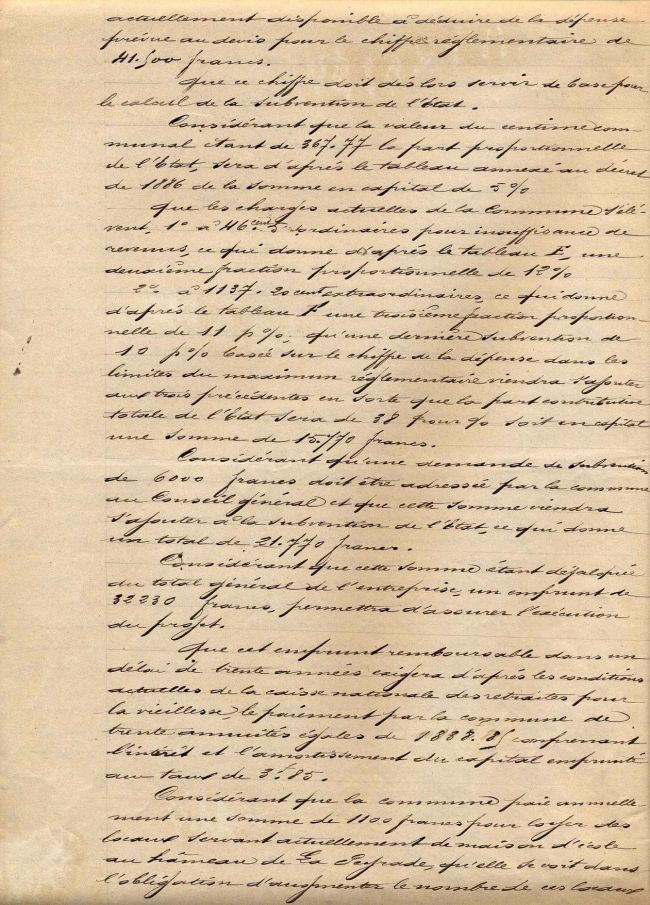 actuellement disponible à déduire de la dépense
prévue au devis pour le chiffre réglementaire de
41.500 francs.
Que ce chiffre doit dès lors servir de base pour
le calcul de la subvention de l'Etat.
Considérant que la valeur du centime com-
munal étant de 367.77 la part proportionnelle
de l'Etat, sera d'après le tableau annexé au décret
de 1886 de la somme en capital de 5%
Que les charges actuelles de la Commune s'élè-
vent, 1° à 46 ordinaires pour insuffisance de
revenus, ce qui donne d'après le tableau E, une
deuxième fraction proportionnelle de 12%
2° à 1137.20 cent extraordinaires, ce qui donne
d'après le tableau F une troisième fraction proportion-
nelle de 11 p%; qu'une dernière subvention de
10 p% basée sur le chiffre de la dépense dans les
limites du maximum réglementaire viendra s'ajouter
aux trois précédentes en sorte que la part contributive
totale de l'Etat sera de 38 pour % soit en capital
une somme de 15.770 francs.
Considérant qu'une demande de subvention
de 6000 francs doit être adressée par la commune
au Conseil général et que cette somme viendra
s'ajouter à la subvention de l'Etat, ce qui donne
un total de 21.770 francs.
Considérant que cette somme étant défalquée
du total général de l'entreprise, un emprunt de
32230 francs, permettra d'assurer l'exécution
du projet.
Que cet emprunt remboursable dans un
délai de trente années exigera d'après les conditions
actuelles de la caisse nationale des retraites pour
la vieillesse, le paiement par la commune de
trente annuités égales de comprenant
l'intérêt et l'amortissement du capital emprunté
au taux de 3f.85.
Considérant que la commune paie annuelle-
ment une somme de 1100 francs pour loyer des
locaux servant actuellement de maison d'école
au hâmeau de La Peyrade, qu'elle se voit dans
l'obligation d'augmenter le nombre de ces locaux